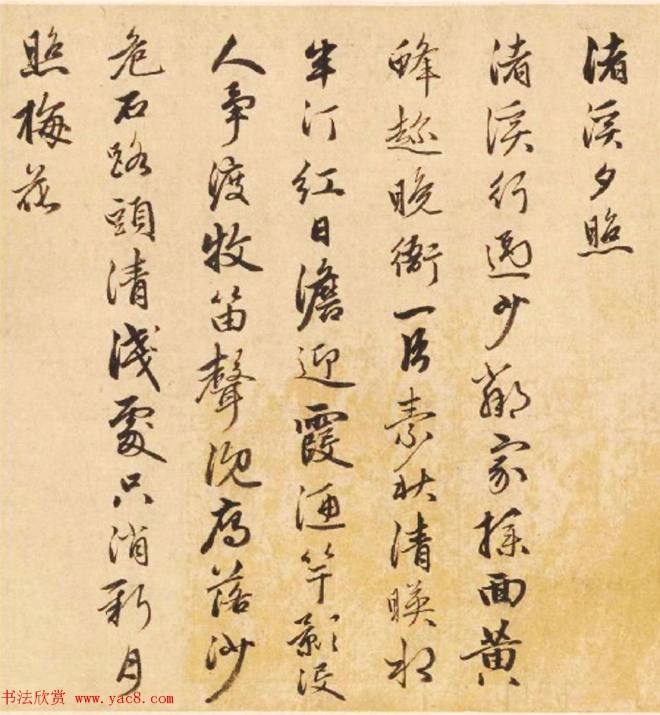 渚溪夕照
渚溪行過少鄰家撲面黃
蜂趂晚衙一片素秋清暎水
半汀紅日澹迎霞漁竿影没
人爭渡牧笛聲沉雁落沙
危石路頭清淺處只消新月
照梅花
书法欣赏 www.yac8.com